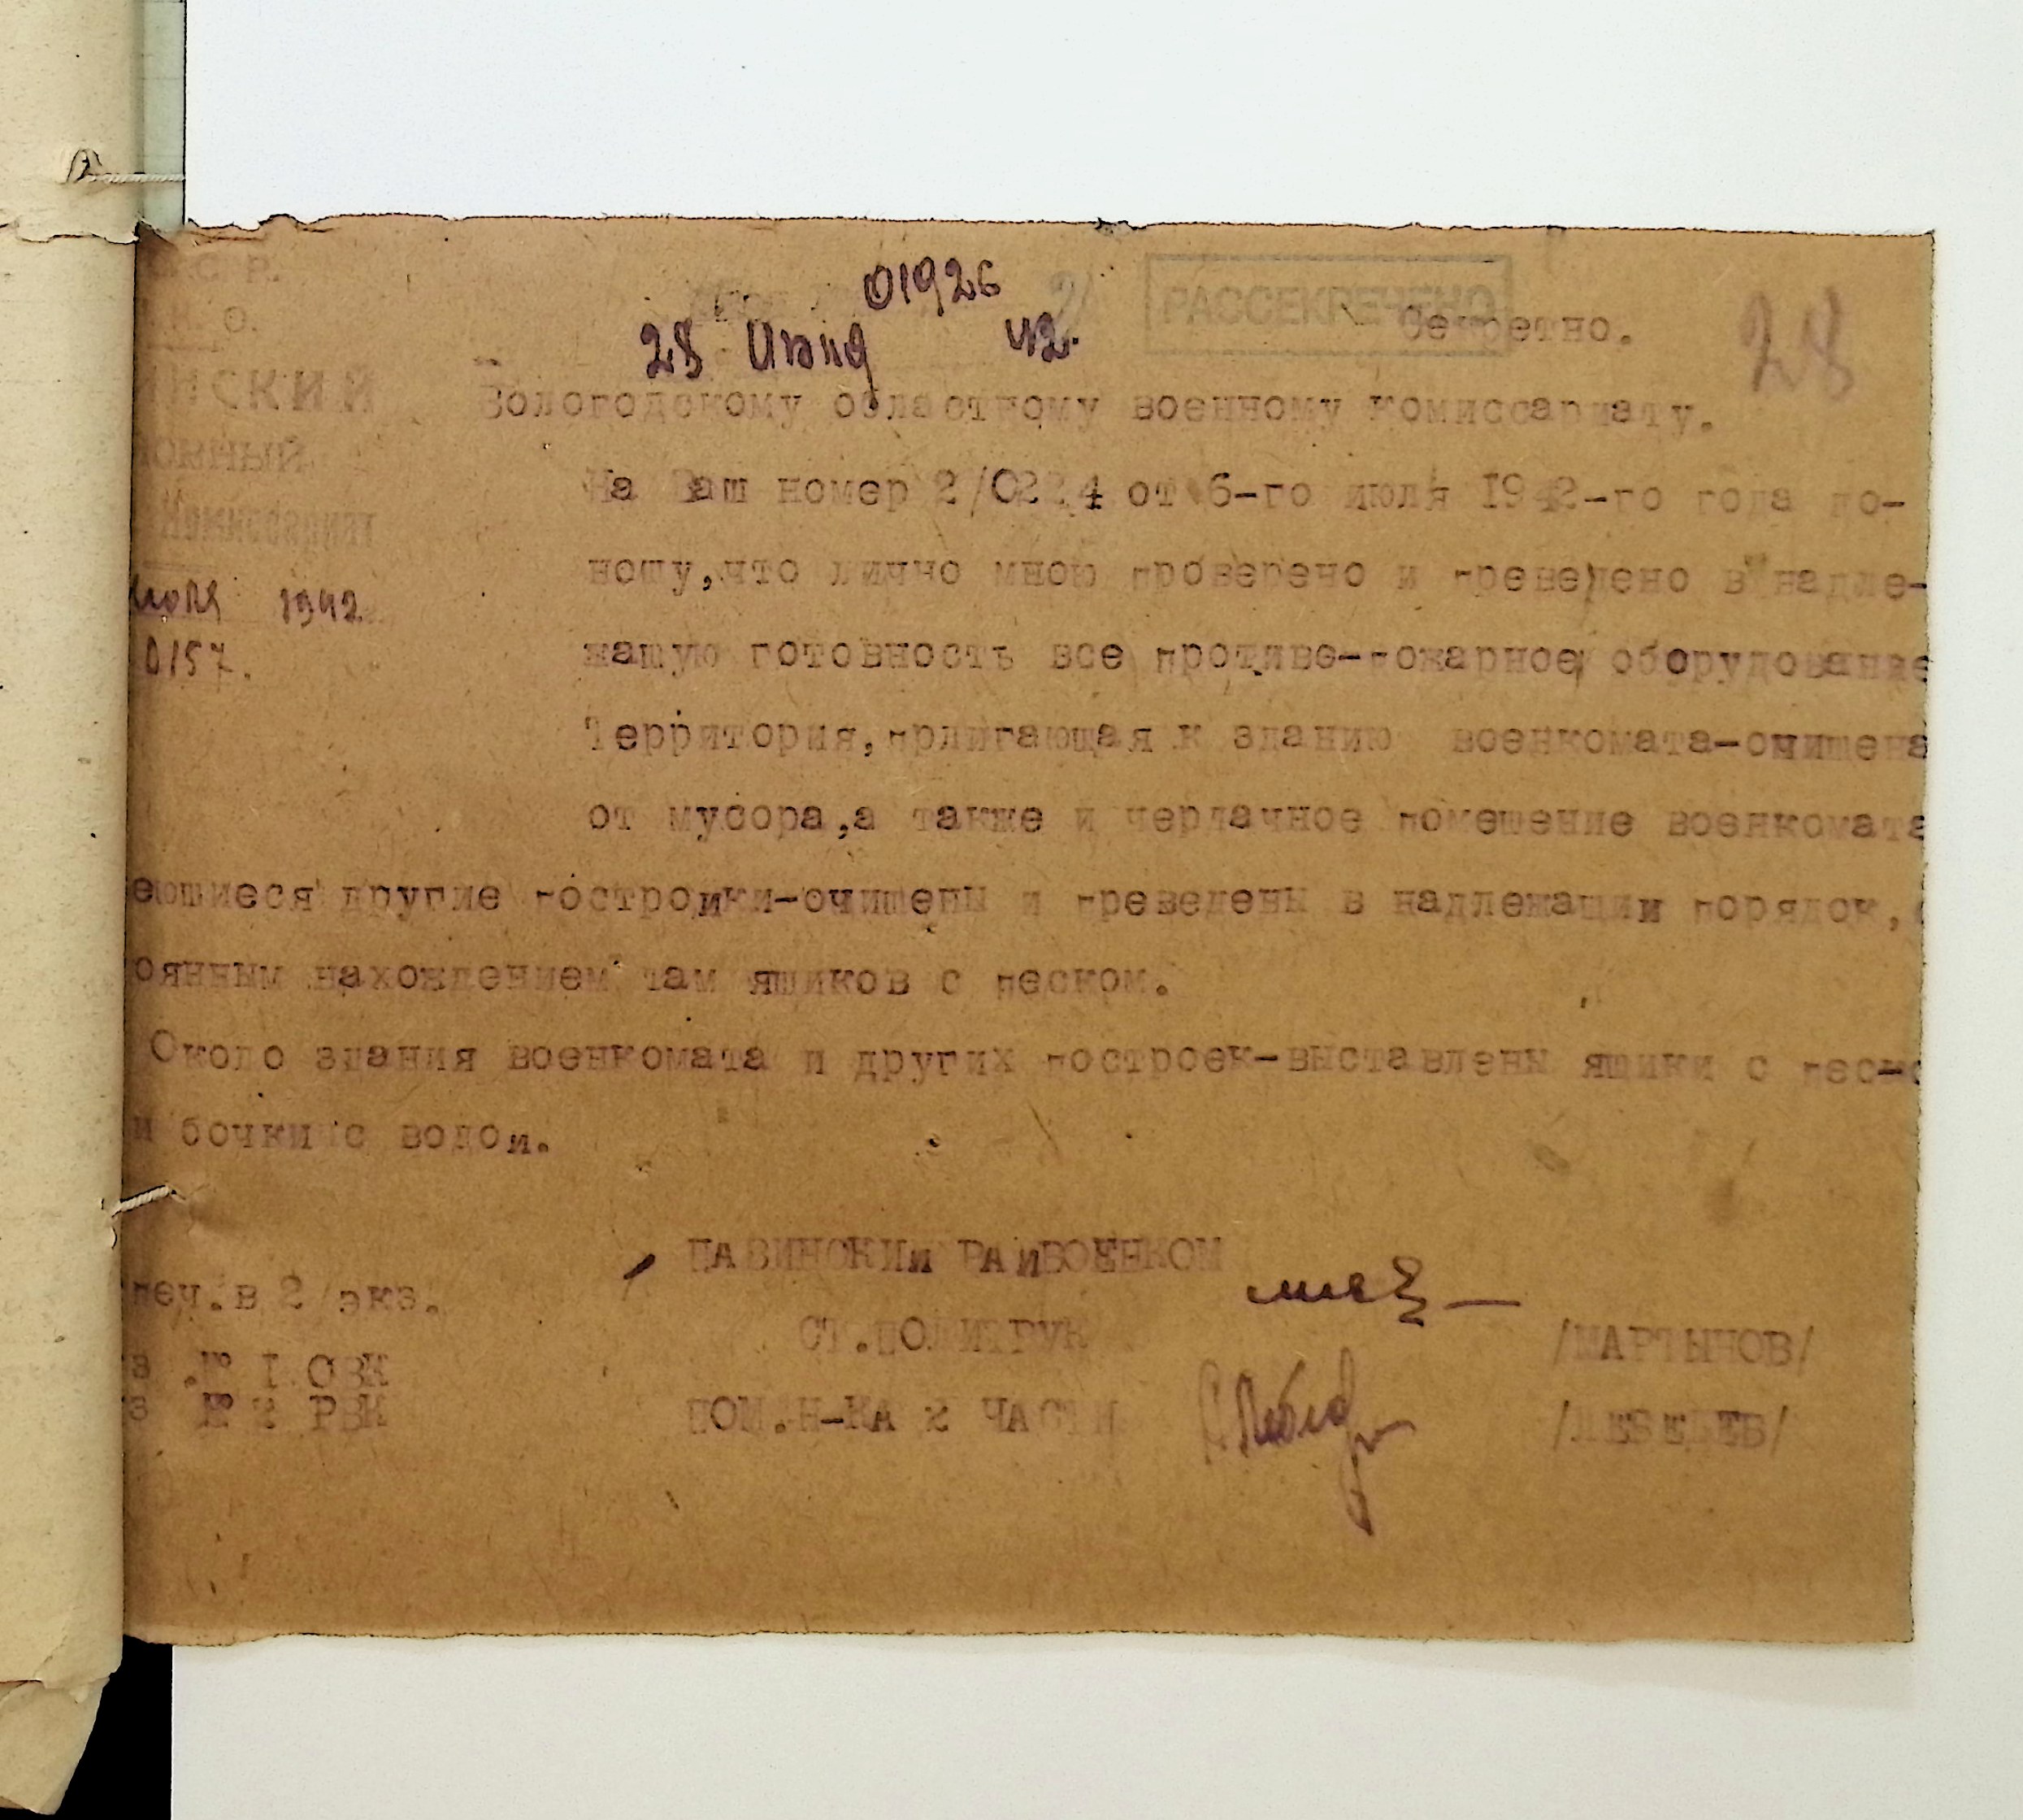 С. С. Р.
Н. К. О.
ИНСКИЙ
Комиссариат
июля 1942
0157.
01926
28 Июля 42.
РАССЕКРЕЧЕНО
Секретно.
28
Вологодскому областному военному комиссариату.
На Ваш номер 2/0224 от 6-го июля 1942-го года до-
ношу,что лично мною проверено и преведено в надле-
жашую готовность все противо-пожарное оборудование
Территория,прлигающая к зданию военкомата-очишена
от мусора,а также и чердачное помешение военкомата
еюшиеся другие постройки-очишены и преведены в надлежащии порядок,с
оянным нахождением там яшиков с песком.
Около здания военкомата и других построек-выставлены яшики с песко
и бочки с водои.
ПАВИНСКИи РАиВОЕНКОМ
СТ.ПОЛИТРУК /МАРТЫНОВ/
ПОМ.Н-КА 2 ЧАСТИ /ЛЕБЕДЕВ/
печ.в 2 экз.
з .№ I ОВК
з № 2 РВК